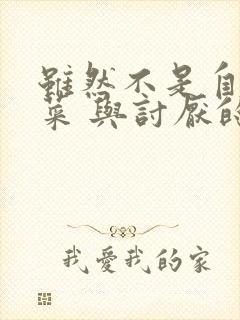 雖然不是自
菜 與討厭的
我愛我的家